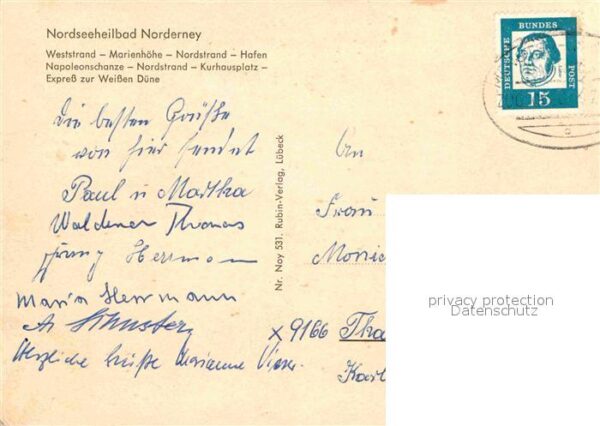 Nordseeheilbad Norderney
Weststrand – Marienhöhe – Nordstrand – Hafen
Napoleonschanze – Nordstrand – Kurhausplatz –
Expreß zur Weißen Düne
Die besten Grüße
von hier sendet
Paul u Martha
Waldener Thomas
Herrmann
Maria Herrmann
Herzliche Grüße Marianne
Nr. Noy 531. Rubin-Verlag, Lübeck
DEUTSCHE BUNDES POST
15
An
Frau
Monic
x 9166 Tha
Karl
privacy protection
Datenschutz